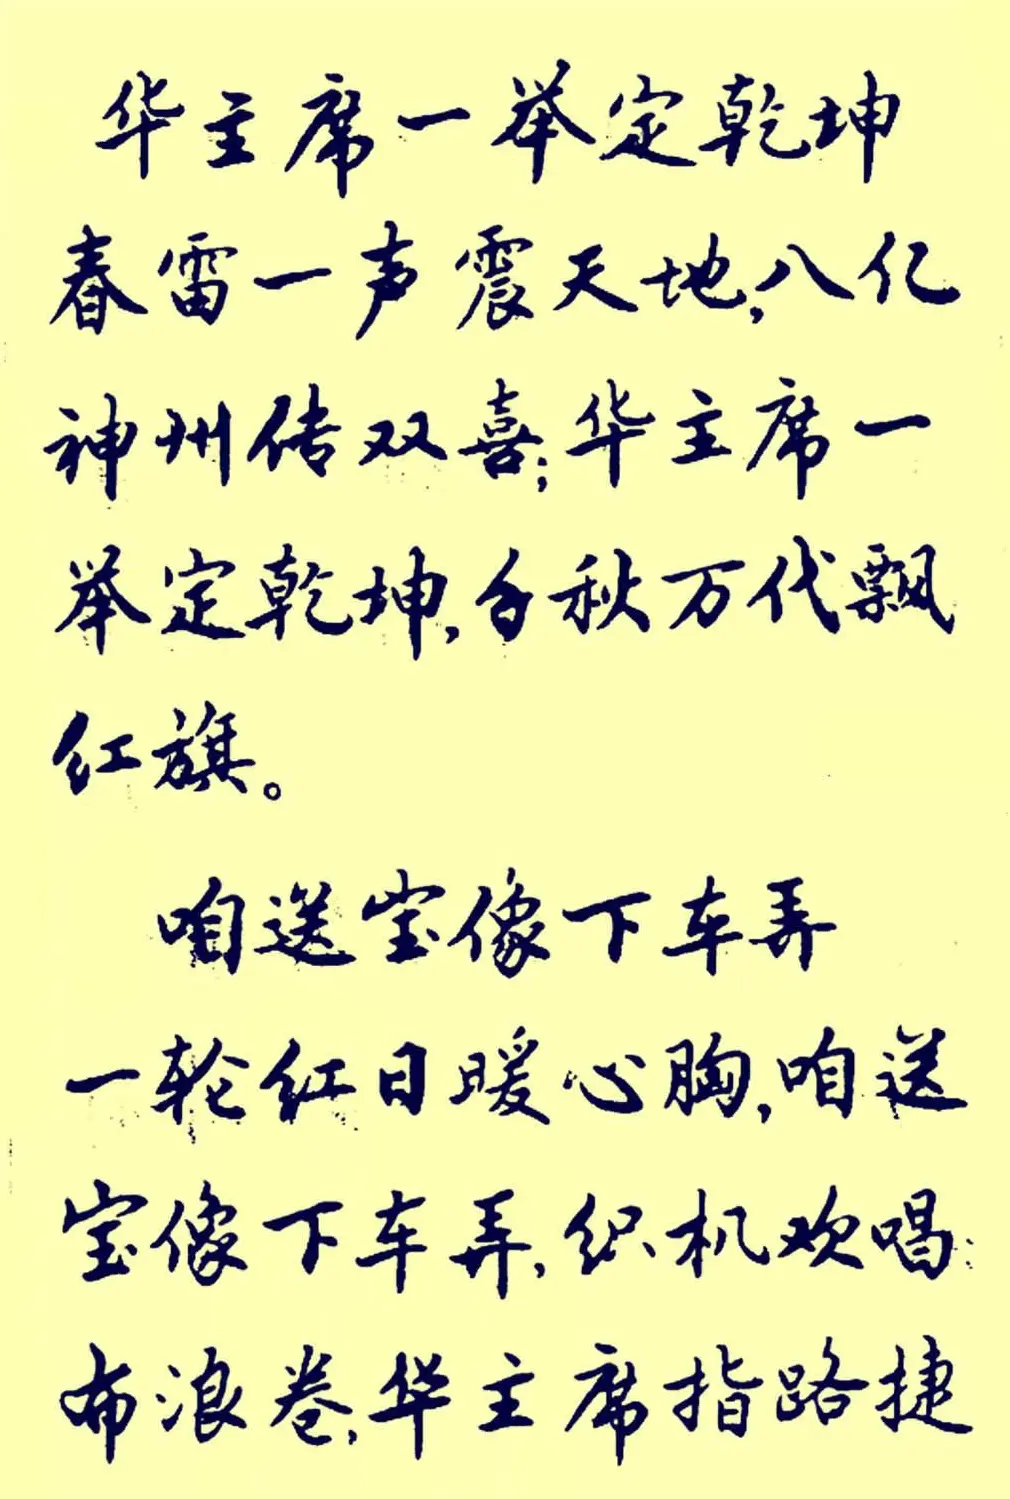 华主席一举定乾坤
春雷一声震天地,八亿
神州传双喜;华主席一
举定乾坤,千秋万代飘
红旗。
咱送宝像下车弄
一轮红日暖心胸,咱送
宝像下车弄,织机欢唱
布浪卷,华主席指路捷